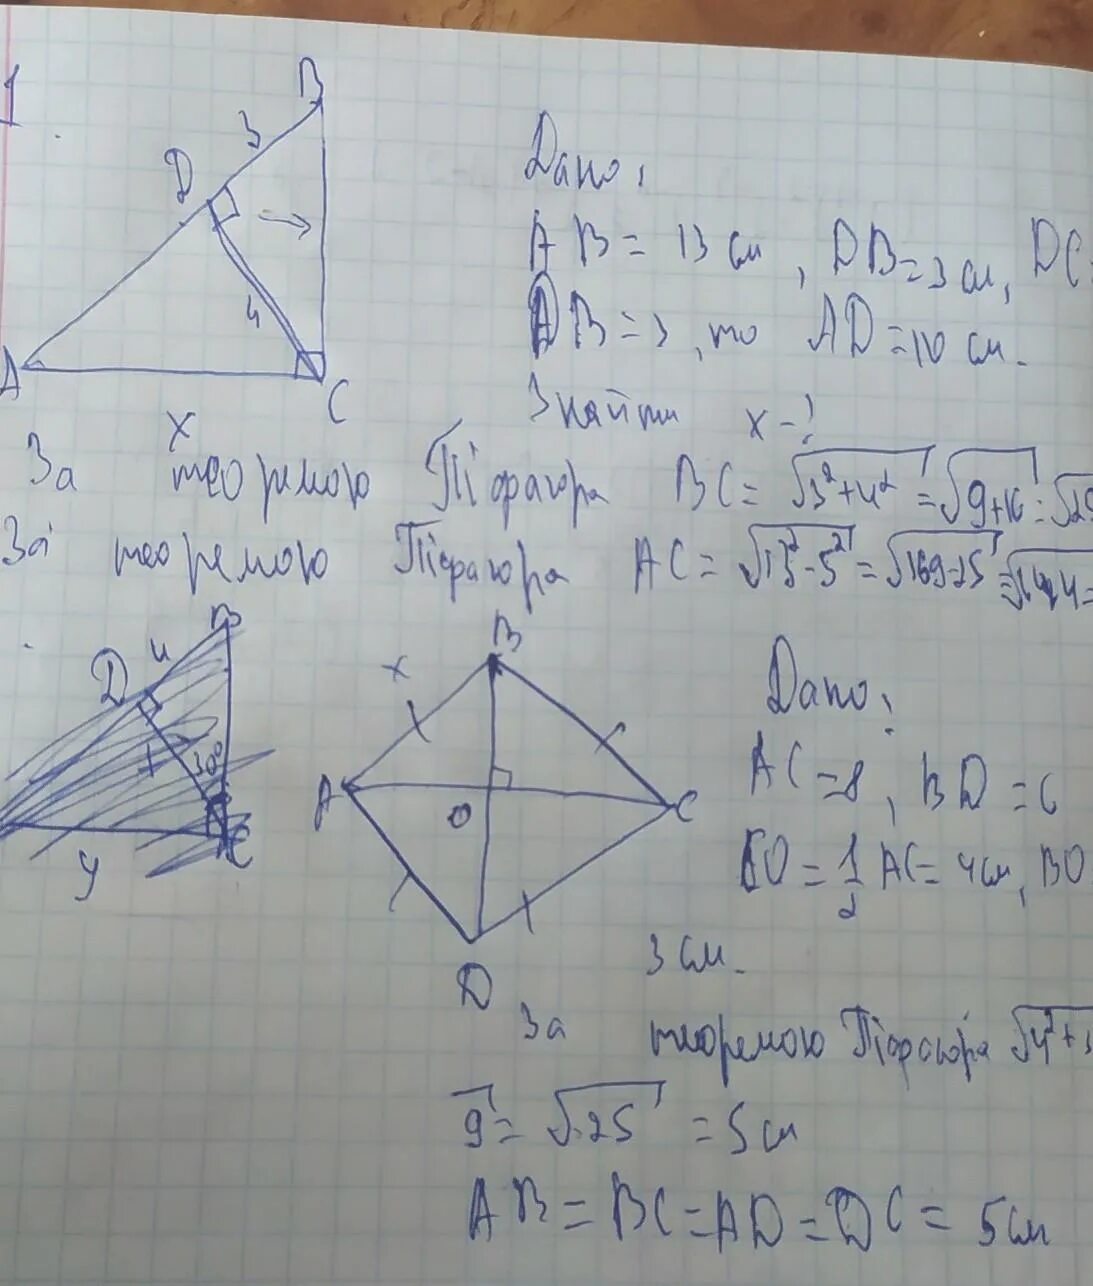 1.
B
3
D
4
A
C
x
Дано:
AB = 13 см, DB = 3 см, DC
DB = 3, то AD = 10 см.
Знайти x - ?
За теоремою Піфагора BC = √3² + 4² = √9 + 16 = √25
За теоремою Піфагора AC = √13² - 5² = √169 - 25 = √144 =
B
4
D
x
30°
C
y
B
x
A
O
C
D
Дано:
AC = 8, BD = 6
CO = 1/2 AC = 4 см, BO
3 см.
За теоремою Піфагора √4² + 3
9 = √25 = 5 см
AB = BC = AD = DC = 5 см